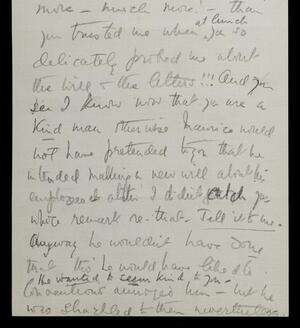 more - much more! - than
you trusted me when you so
at lunch
delicately probed me about
the will & the letters!!! And you
see I know now that you are a
kind man otherwise Maurice would
not have pretended to you that he
intended making a new will about his
employees & after I didn't catch yr
whole remark re-that - Tell it to me.
Anyway he wouldn't have done
that tho' he would have liked to
he wanted to seem kind to you -
Conventions annoyed him - but he
was shackled to them nevertheless.